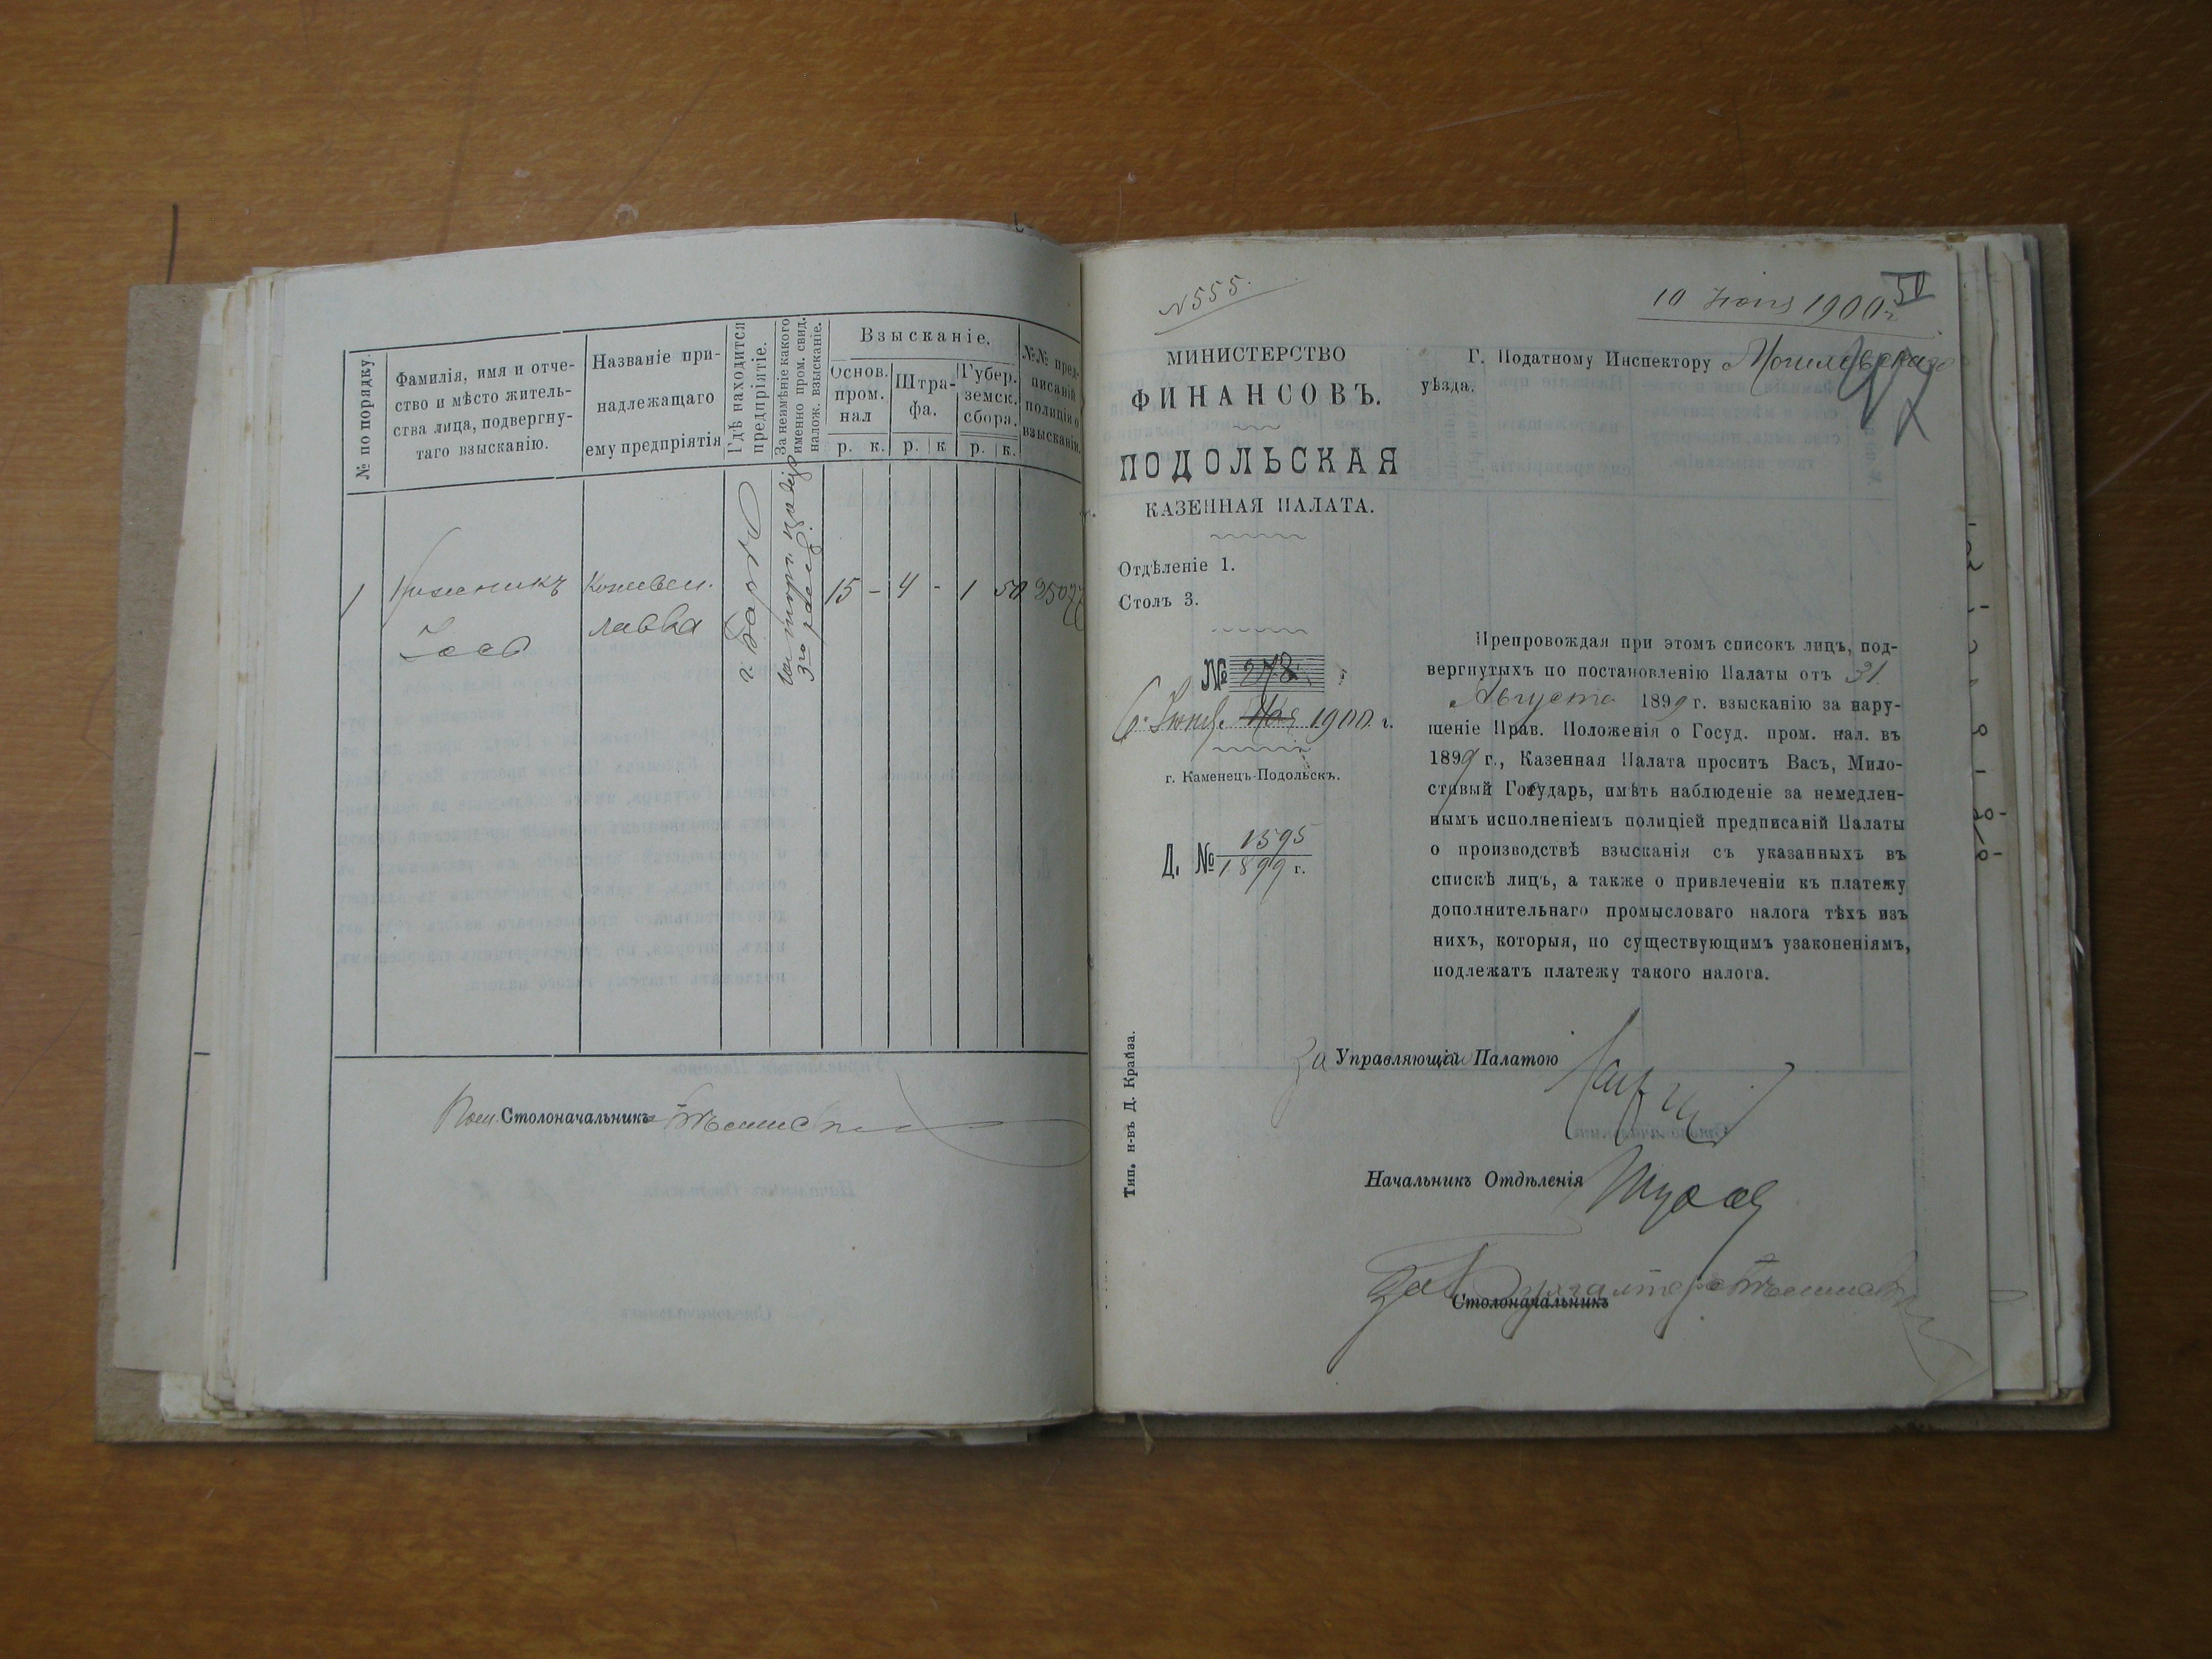 № по порядку.
Фамилія, имя и отче-
ство и мѣсто житель-
ства лица, подвергну-
таго взысканію.
Названіе при-
надлежащаго
ему предпріятія
Гдѣ находится
предпріятіе.
За неимѣніе какого
именно пром. свид.
налож. взысканіе.
Взысканіе.
Основ.
пром.
нал
Штра-
фа.
Губер.
земск.
сбора.
№№ пред-
писаній
полиціи о
взысканіи.
р. к. р. к р. к.
1 Кожевен. 15 - 4 - 1 50
лавка
г. Баръ
Пом. Столоначальникъ
№ 555.
10 Іюня 1900 г.
50
МИНИСТЕРСТВО
ФИНАНСОВЪ.
ПОДОЛЬСКАЯ
КАЗЕННАЯ ПАЛАТА.
Отдѣленіе 1.
Столъ 3.
№ 278
6 Іюня Мая 1900 г.
г. Каменецъ-Подольскъ.
Д. № 1595
1899 г.
Тип. н-въ Д. Крайза.
Г. Податному Инспектору Могилевскаго
уѣзда.
Препровождая при этомъ списокъ лицъ, под-
вергнутыхъ по постановленію Палаты отъ 31
Августа 1899 г. взысканію за нару-
шеніе Прав. Положенія о Госуд. пром. нал. въ
1899 г., Казенная Палата проситъ Васъ, Мило-
стивый Государь, имѣть наблюденіе за немедлен-
нымъ исполненіемъ полиціей предписаній Палаты
о производствѣ взысканія съ указанныхъ въ
спискѣ лицъ, а также о привлеченіи къ платежу
дополнительнаго промысловаго налога тѣхъ изъ
нихъ, которыя, по существующимъ узаконеніямъ,
подлежатъ платежу такого налога.
За Управляющій Палатою
Начальникъ Отдѣленія
За Бухгалтера
Столоначальникъ